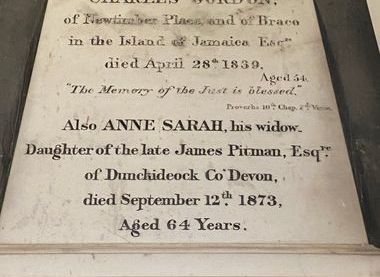 CHARLES GORDON,
of Newtimber Place, and of Braco
in the Island of Jamaica Esqre.
died April 28th 1839,
Aged 54.
"The Memory of the Just is blessed."
Proverbs 10th Chap. 7th Verse.
Also ANNE SARAH, his widow.
Daughter of the late James Pitman, Esqre.
of Dunchideock Co. Devon,
died September 12th 1873,
Aged 64 Years.